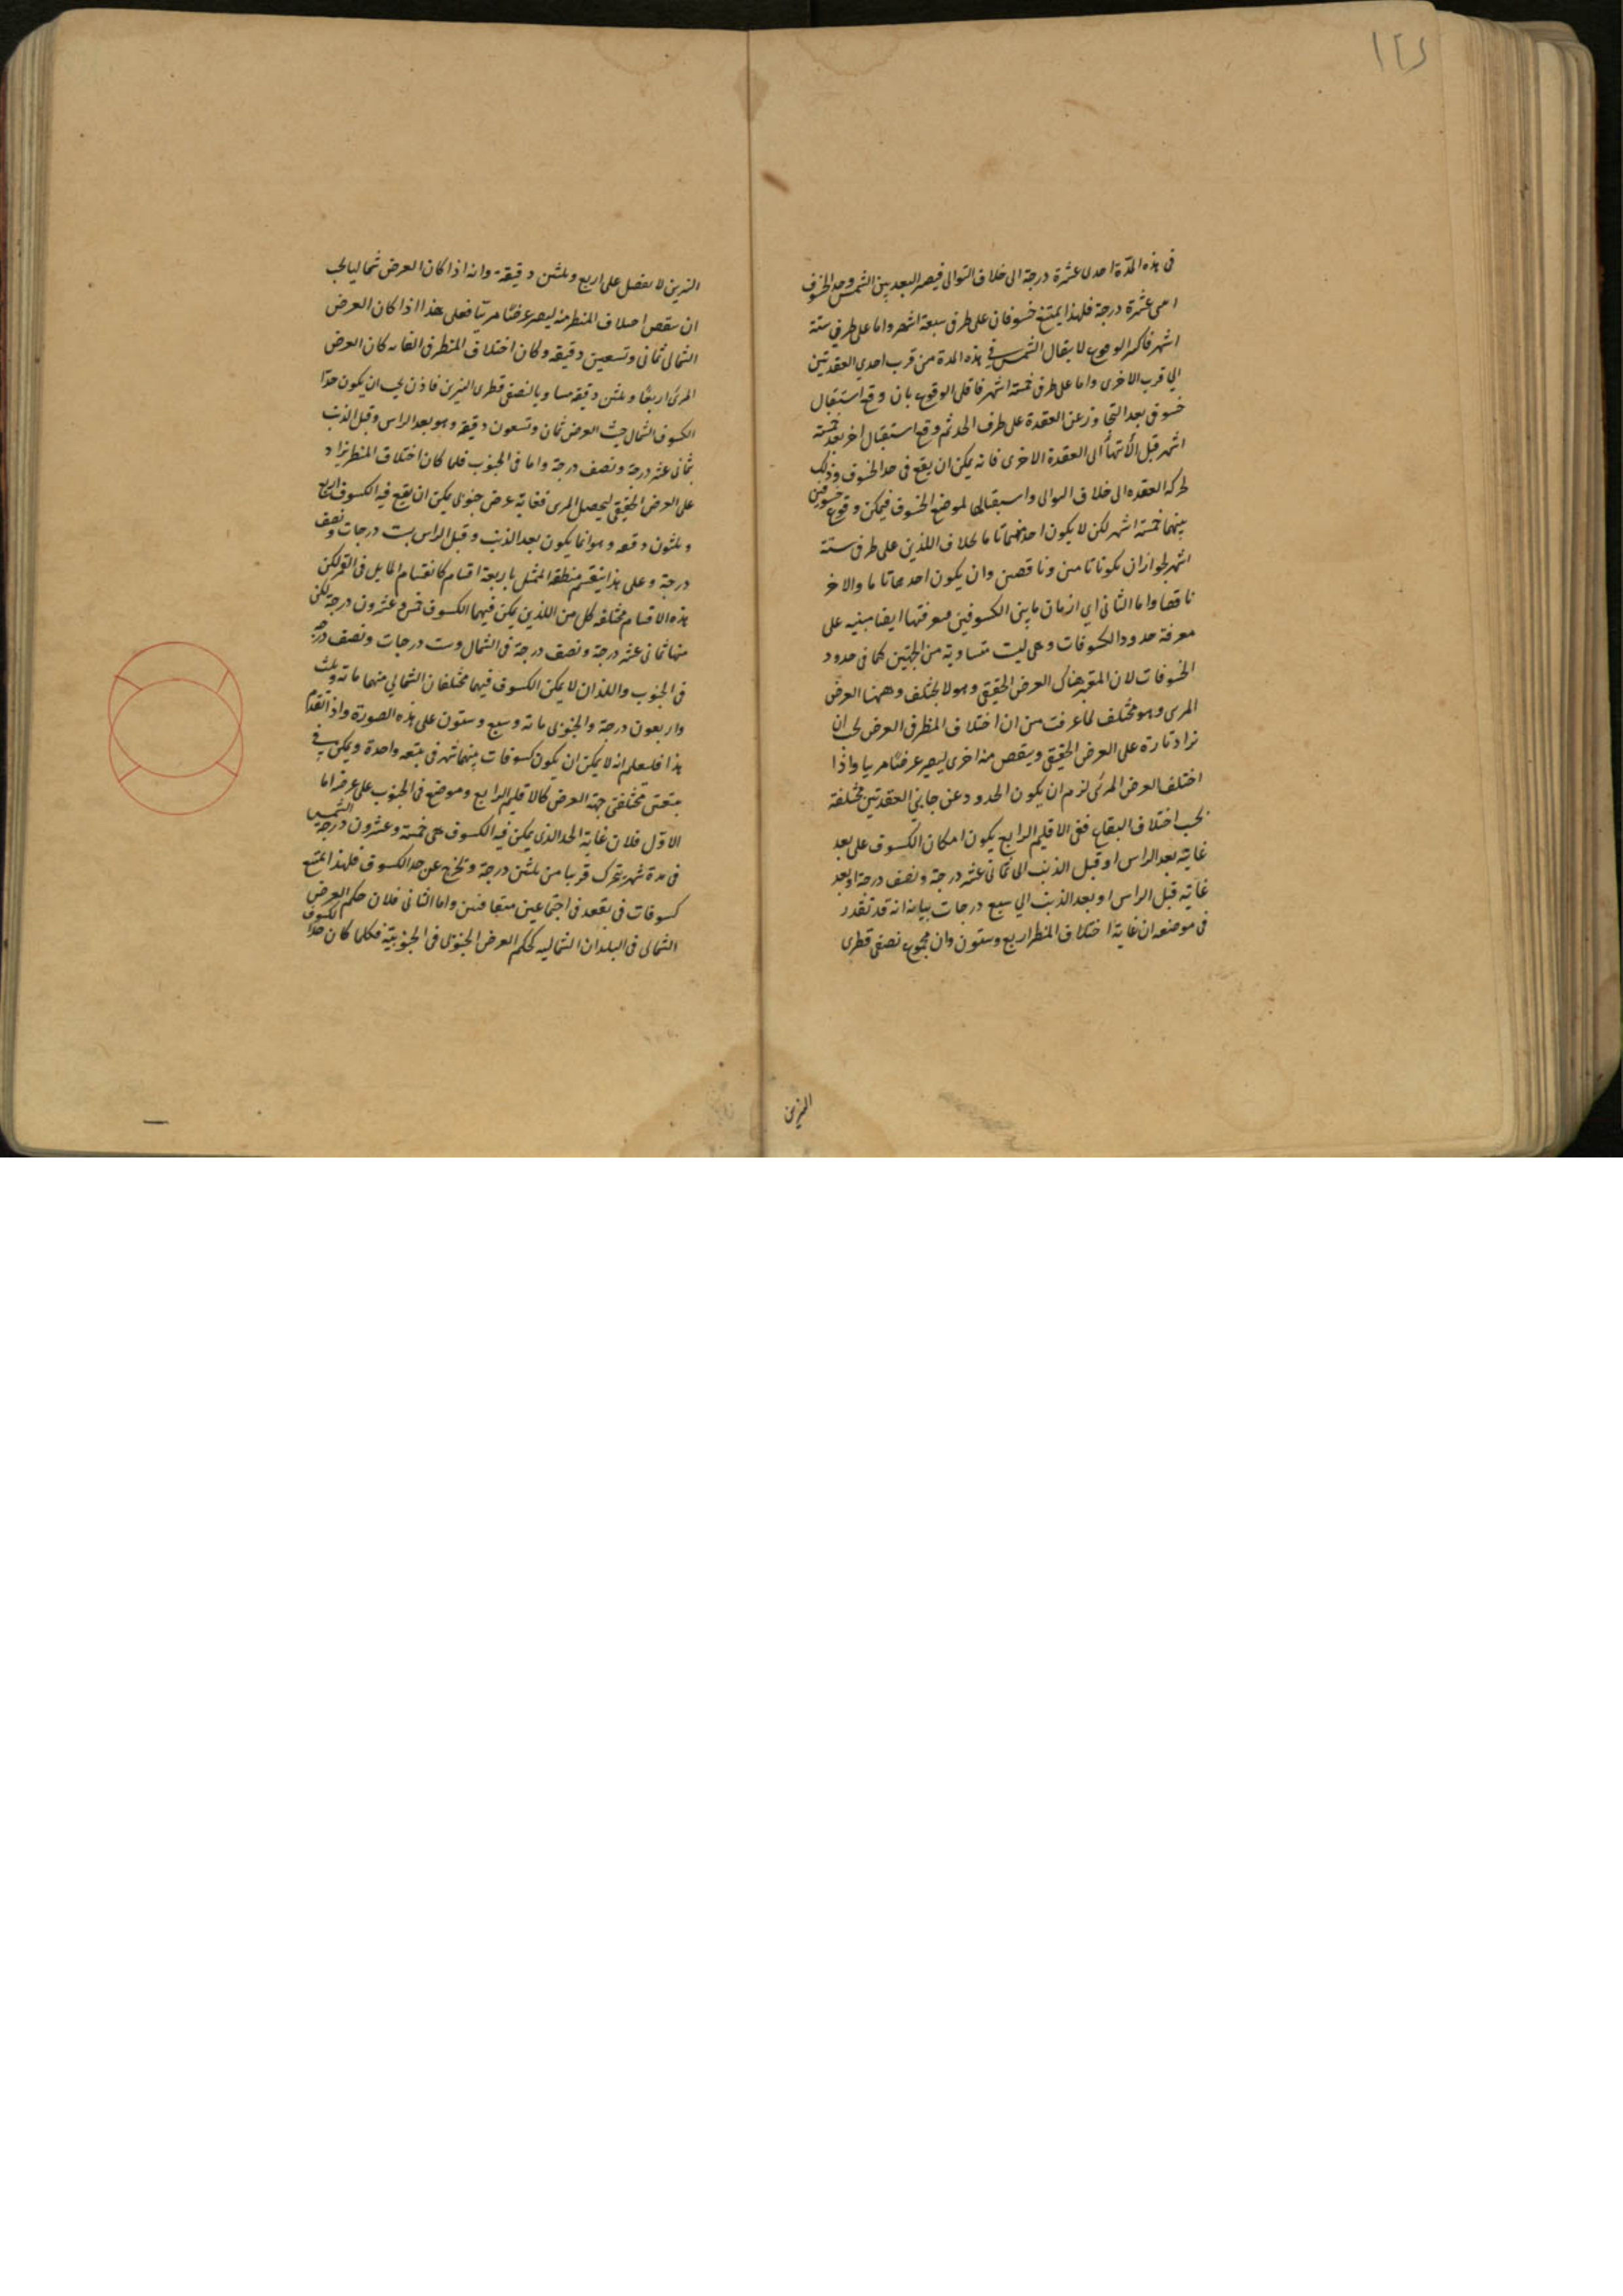 في هذه المدة احدى عشرة درجة الى خلاف التوالي فيصير البعد بين الشمس وحد الخسوف
عشرة درجة فلهذا يمتنع خسوفان على طرفي سبعة اشهر واما على طرفي ستة
اشهر فاكثر الوقوع لانتقال الشمس في هذه المدة من قرب احدى العقدتين
الي قرب الاخرى واما على طرفي خمسة اشهر فاقل الوقوع بان وقع استقبال
خسوفي بعد التجاوز عن العقدة على طرف الحد ثم وقع استقبال اخر بعد خمسة
اشهر قبل الانتهاء الى العقدة الاخرى فانه يمكن ان يقع في حد الخسوف وذلك
لحركة العقده الى خلاف التوالى واستقبالها لموضع الخسوف فيمكن وقوع خسوفين
بينهما خمسة اشهر لكن لا يكون احدهما تاما بخلاف اللذين على طرفي ستة
اشهر لجواز ان يكونا تامين وناقصين وان يكون احدهما تاما والاخر
ناقصا واما الثاني اي ازمان ما بين الكسوفين فمعرفتها ايضا مبنيه على
معرفة حدود الكسوفات وهي ليست متساوية من الجهتين كما في حدود
الخسوفات لان المعتبر هناك العرض الحقيقي وهو لا يختلف وههنا العرض
المرئي وهو مختلف لما عرفت من ان اختلاف المنظر في العرض يجب ان
يزاد تارة على العرض الحقيقي وينقص منه اخرى ليصير عرضا مرئيا واذا
اختلف العرض المرئي لزم ان يكون الحدود عن جانبي العقدتين مختلفة
بحسب اختلاف البقاع ففي الاقليم الرابع يكون امكان الكسوف على بعد
غايته بعد الراس او قبل الذنب الى ثماني عشرة درجة ونصف درجة او بعد
غايته قبل الراس او بعد الذنب الي سبع درجات بيانه انه قد تقدر
في موضعه ان غاية اختلاف المنظر اربع وستون وان مجموع نصفي قطرى
النيرين
النيرين لا يفضل على اربع وثلثين دقيقة وانه اذا كان العرض شماليا يجب
ان ينقص اختلاف المنظر منه ليصير عرضا مرئيا فعلى هذا اذا كان العرض
الشمالي ثماني وتسعين دقيقة وكان اختلاف المنظر في الغاية كان العرض
المرئي اربعا وثلثين دقيقة مساويا لنصفي قطرى النيرين فاذن يجب ان يكون حد
الكسوف الشمالي حيث العرض ثمان وتسعون دقيقة وهو بعد الراس وقبل الذنب
بثماني عشرة درجة ونصف درجة واما في الجنوب فلما كان اختلاف المنظر يزاد
على العرض الحقيقي ليحصل المرئي فغاية عرض جنوبي يمكن ان يقع فيه الكسوف اربع
وثلثون دقيقه وهو انما يكون بعد الذنب وقبل الراس بست درجات ونصف
درجة وعلى هذا ينقسم منطقة الممثل باربعة اقسام كانقسام المايل في القمر لكن
هذه الاقسام مختلفة كل من اللذين يمكن فيهما الكسوف خمس وعشرون درجة لكن
منها ثماني عشرة درجة ونصف درجة في الشمال وست درجات ونصف درجة
في الجنوب واللذان لا يمكن الكسوف فيهما مختلفان الشمالي منهما مائة وثلث
واربعون درجة والجنوبي مائة وسبع وستون على هذه الصورة واذا تقدم
هذا فليعلم انه لا يمكن ان يكون كسوفات بينهما شهر في بقعة واحدة ويمكن في
بقعتين مختلفتي جهة العرض كالاقليم الرابع وموضع في الجنوب على عرضه اما
الاول فلان غاية الحد الذي يمكن فيه الكسوف هي خمسة وعشرون درجة والشمس
في مدة شهر يتحرك قريبا من ثلثين درجة وتخرج عن حد الكسوف فلهذا يمتنع
كسوفات في بقعة في اجتماعين متعاقبين واما الثاني فلان حكم العرض
الشمالي في البلدان الشماليه كحكم العرض الجنوبي في الجنوبية فكلما كان حد الكسوف